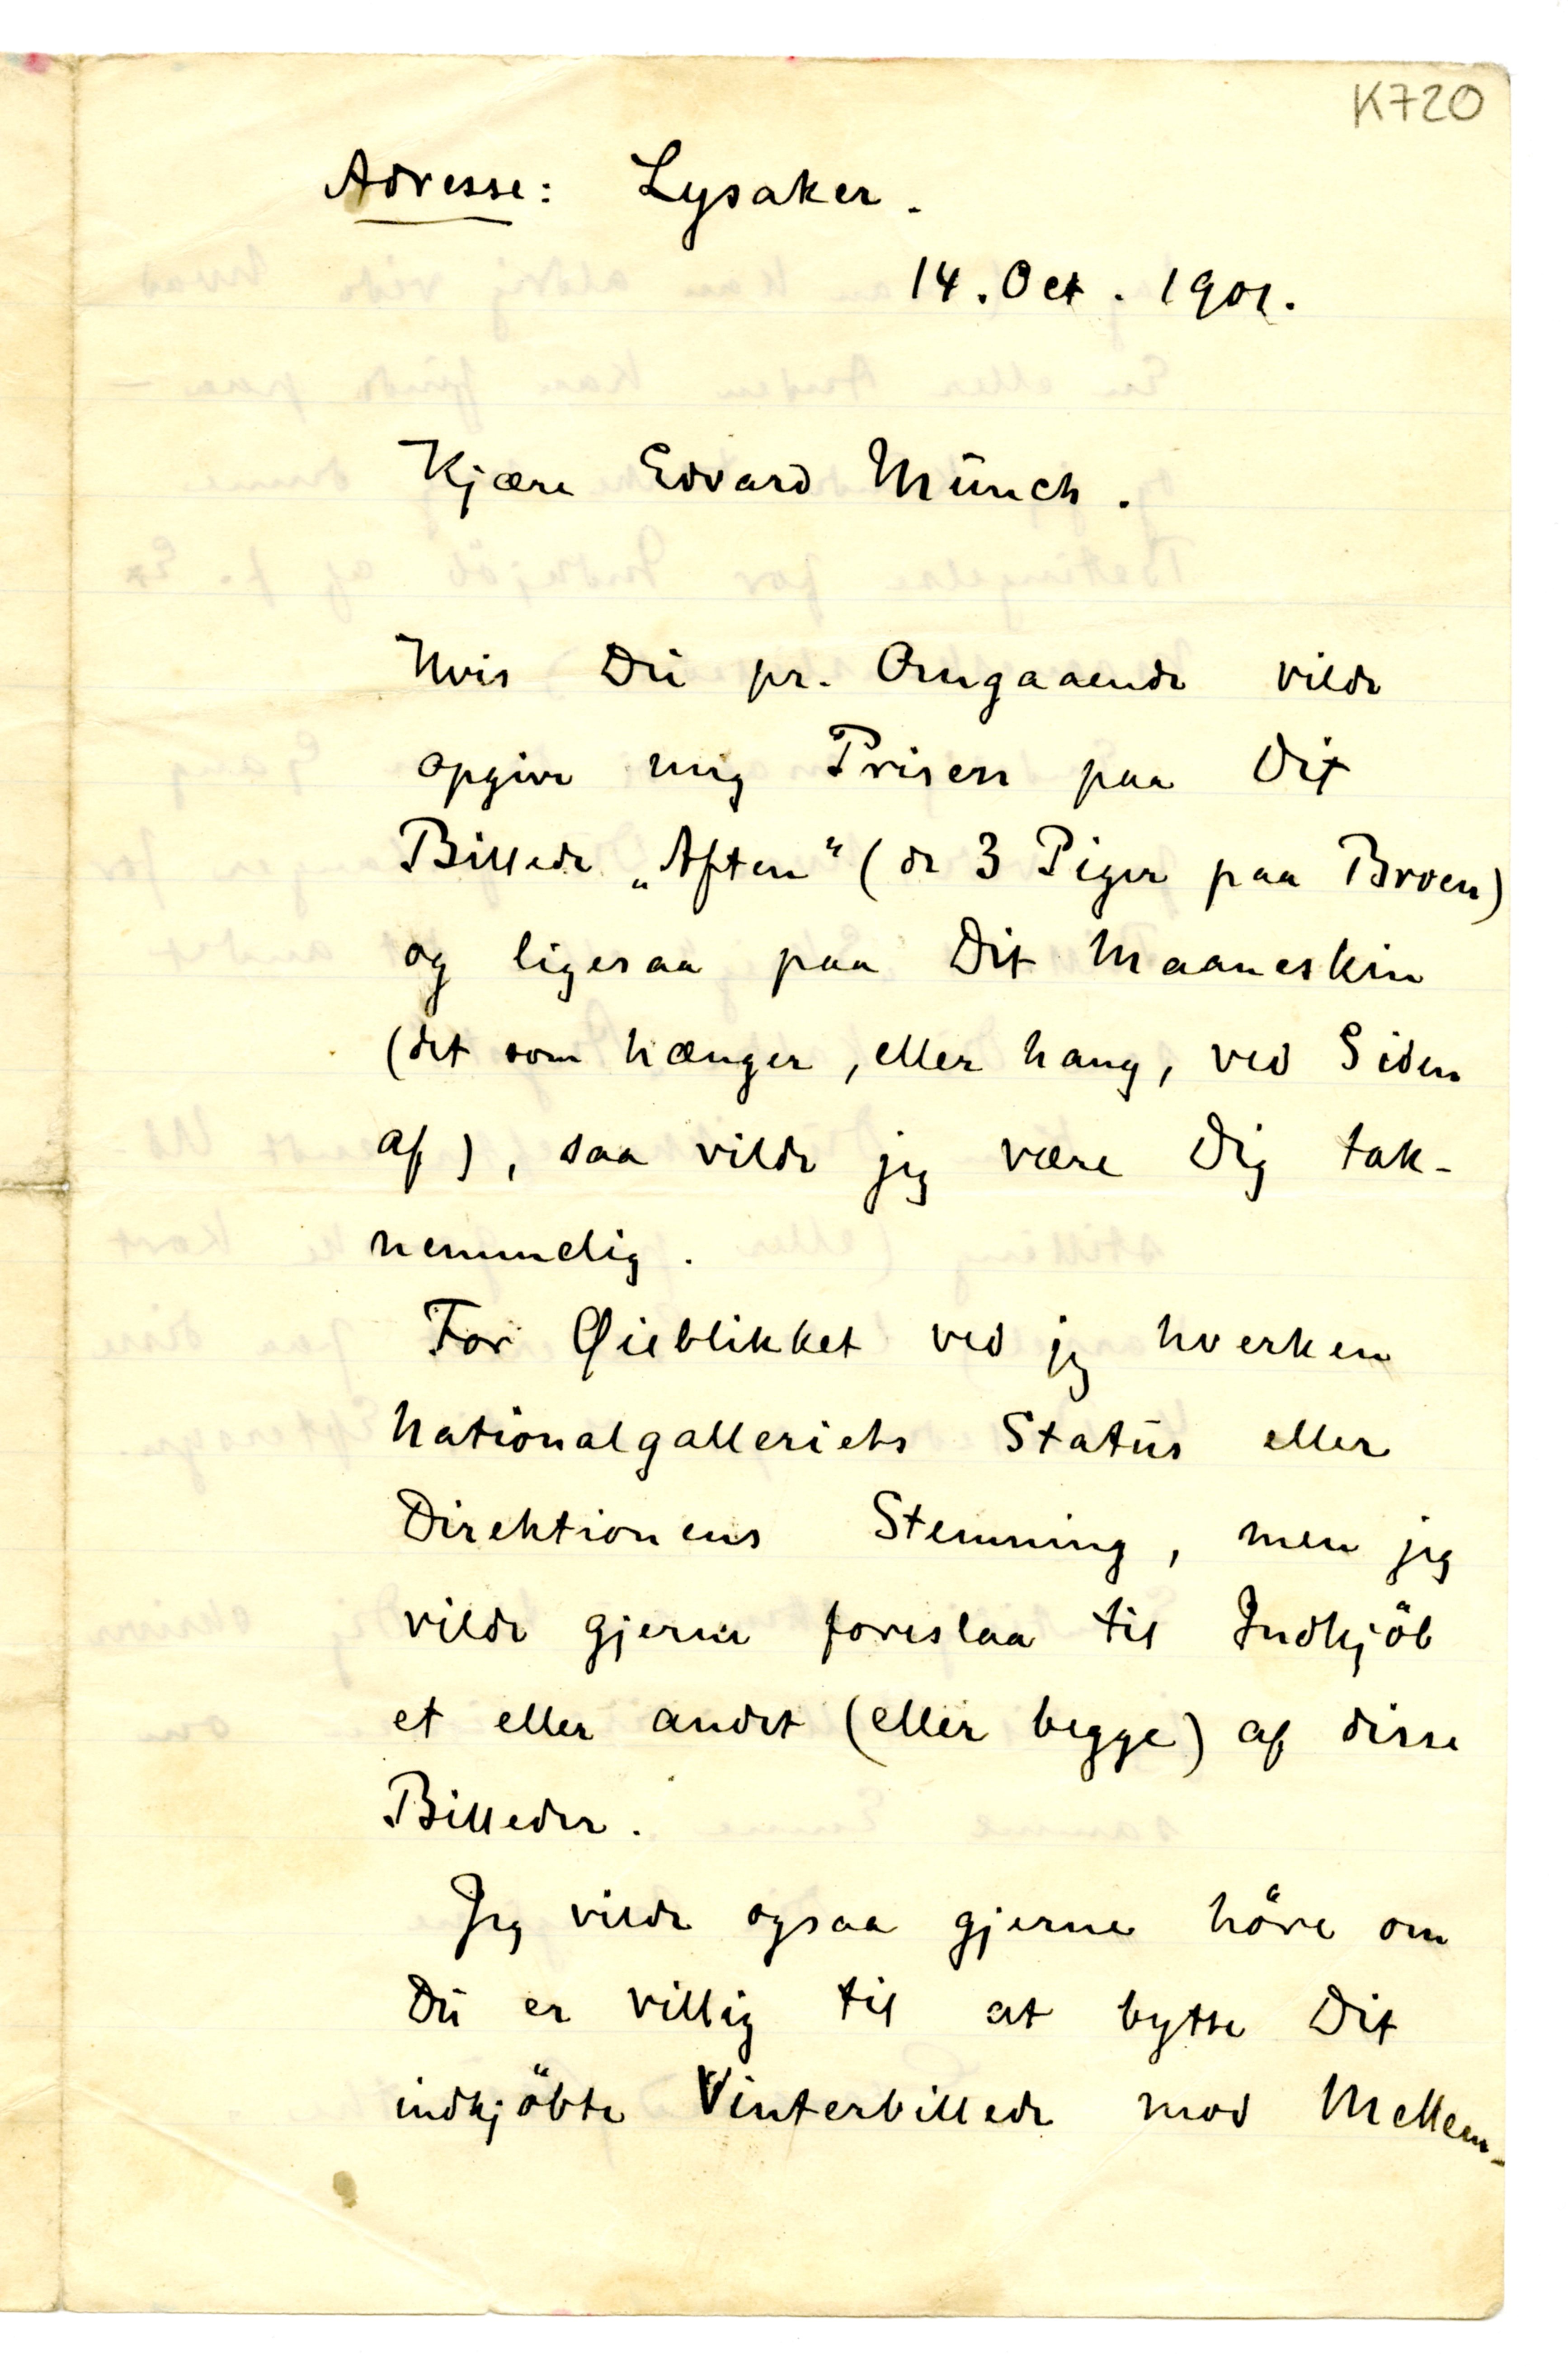 K720
Adresse: Lysaker.
14. Oct. 1901.
Kjære Edvard Munch.
Hvis Du pr. Omgaaende vilde
opgive mig Prisen paa Dit
Billede „Aften“ (de 3 Piger paa Broen)
og ligesaa paa Dit Maaneskin
(det som hænger, eller hang, ved Siden
af), saa vilde jeg være Dig tak-
nemmelig.
For Øieblikket ved jeg hverken
Nationalgalleriets Status eller
Direktionens Stemning, men jeg
vilde gjerne foreslaa til Indkjöb
et eller andet (eller begge) af disse
Billeder.
Jeg vilde ogsaa gjerne höre om
Du er villig til at bytte Dit
indkjöbte Vinterbillede mod Mellem-